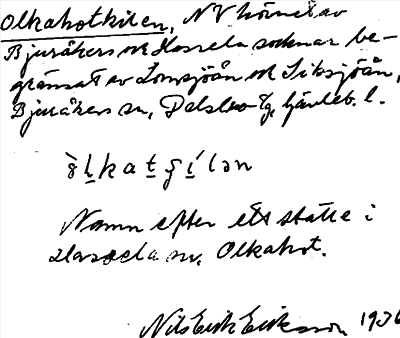 Olkahotkilen, NV hörnet av
Bjuråkers ok Hassela socknar be-
gränsat av Lomsjöån ok Siksjöån,
Bjuråkers sn, Gävleb. l.
Namn efter ett ställe i
Hassela sn, Olkahot.
Nils Erik Eriksson 1936